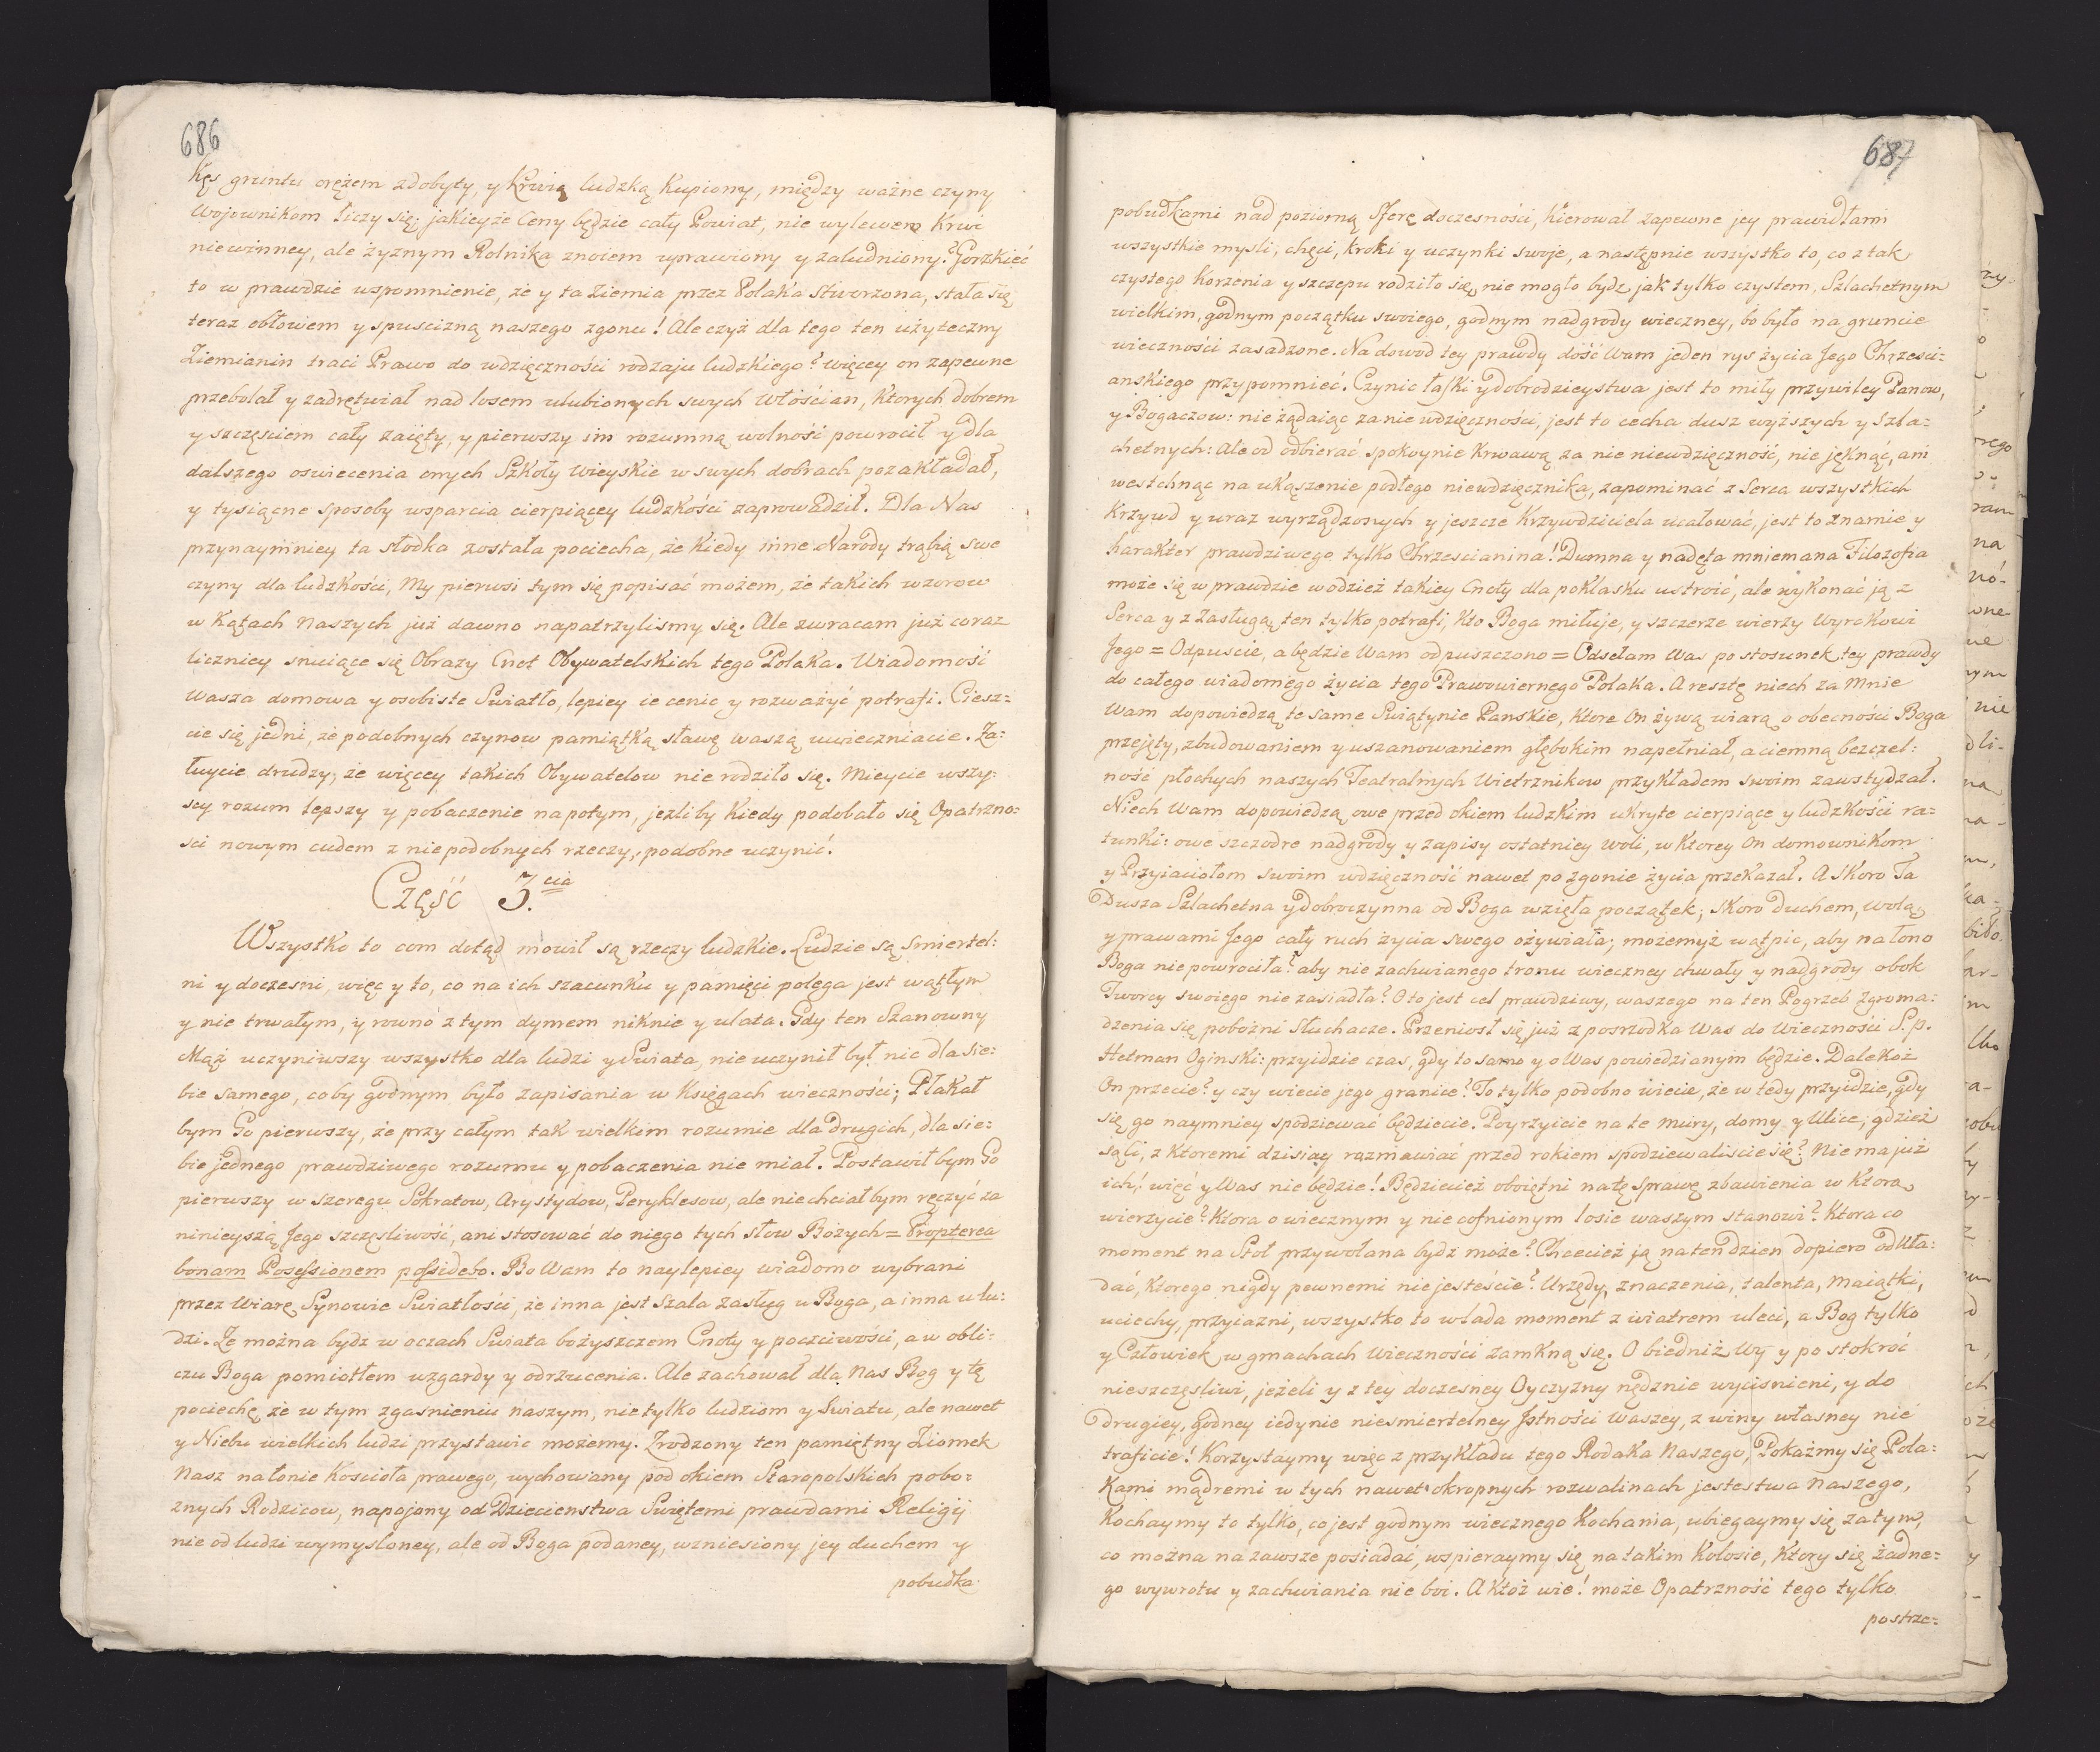 686
Kęs gruntu orężem zdobyty, y Krwią ludzką Kupiony, między ważne czyny
Wojownikom liczy się; jakieyże Ceny będzie cały Powiat, nie wylewem Krwi
niewinney, ale żyznym Rolnika znoiem uprawiony y zaludniony? Gorzkieć
to w prawdzie wspomnienie, że y ta Ziemia przez Polaka stworzona, stała się
teraz obłowem y spuscizną naszego zgonu! Ale czyż dla tego ten użyteczny
Ziemianin traci Prawo do wdzięczności rodzaju ludzkiego? więcey on zapewne
przebolał y zadrętwiał nad losem ulubionych swych Włościan, Ktorych dobrem
y szczęsciem cały zaięty, y pierwszy im rozumną wolność powrocił y dla
dalszego oswiecenia onych Szkoły Wieyskie w swych dobrach pozakładał,
y tysiączne sposoby wsparcia cierpiącey ludzkości zaprowadził. Dla Nas
przynaymniey ta słodka została pociecha, że Kiedy inne Narody trąbią swe
czyny dla ludzkości, My pierwsi tym się popisać możem, że takich wzorow
w Kątach Naszych już dawno napatrzylismy się. Ale zwracam już coraz
liczniey snuiące się Obrazy Cnot Obywatelskich tego Polaka. Wiadomość
Wasza domowa y osobiste Swiatło, lepiey ie cenic y rozważyć potrafi. Ciesz=
cie się jedni, że podobnych czynow pamiątką sławę waszą uwieczniacie. Ża=
łuycie drudzy, że więcey takich Obywatelow nie rodziło się. Mieycie wszy=
scy rozum lepszy y pobaczenie na potym, jezliby Kiedy podobało się Opatrzno=
sci nowym cudem z niepodobnych rzeczy, podobne uczynić.
Część 3.cia
Wszystko to com dotąd mowił są rzeczy ludzkie. Ludzie są smiertel=
ni y doczesni, więc y to, co na ich szacunku y pamięci polega jest wątłym
y nie trwałym, y rowno z tym dymem niknie y ulata. Gdy ten Szanowny
Mąż uczyniwszy wszystko dla ludzi y Swiata, nie uczynił był nic dla sie=
bie samego, coby godnym było zapisania w Księgach wieczności; Płakał
bym Go pierwszy, że przy całym tak wielkim rozumie dla drugich, dla sie=
bie jednego prawdziwego rozumu y pobaczenia nie miał. Postawił bym Go
pierwszy w szeregu Sokratow, Arystydow, Peryklesow, ale niechciał bym ręczyć za
ninieyszą Jego szczęsliwość, ani stosować do niego tych słow Bożych = Propterea
bonam Possessionem possidebo. Bo Wam to naylepiey wiadomo wybrani
przez Wiarę Synowie Swiatłości, że inna jest Szala zasług u Boga, a inna u lu=
dzi. Że można bydz w oczach Swiata bożyszczem Cnoty y poczciwości, a w obli=
czu Boga pomiotłem wzgardy y odrzucenia. Ale zachował dla Nas Bog y tę
pociechę, że w tym zgasnieniu naszym, nietylko ludziom y Swiatu, ale nawet
y Niebu wielkich ludzi przystawic możemy. Zrodzony ten pamiętny Ziomek
Nasz na łonie Koscioła prawego, wychowany pod okiem Staropolskich pobo=
żnych Rodzicow, napojony od Dziecienstwa Swiętemi prawdami Religij
nie od ludzi wymysloney, ale od Boga podaney, wzniesiony jey duchem y
pobudka=
687
pobudkami nad poziomą Sferę doczesności, Kierował zapewne jey prawidłami
wszystkie mysli, chęci, kroki y uczynki swoje, a następnie wszystko to, co z tak
czystego Korzenia y szczepu rodziło się, nie mogło bydz jak tylko czystem, Szlachetnym
wielkim, godnym początku swoiego, godnym nadgrody wieczney, bo było na gruncie
wieczności zasadzone. Na dowod tey prawdy dość Wam jeden rys życia Jego Chrzesci=
anskiego przypomnieć. Czynic łaski y dobrodzieystwa jest to miły przywiley Panow,
y Bogaczow: nie żądaiąc za nie wdzięczności, jest to cecha dusz wyższych y Szla=
chetnych: Ale od odbierać spokoynie Krwawą za nie niewdzięczność, nie jęknąć, ani
westchnąc na ukąszenie podłego niewdzięcznika, zapominać z Serca wszystkich
Krzywd y uraz wyrządzonych y jeszcze Krzywdziciela ucałować, jest to znamie y
harakter prawdziwego tylko Chrzescianina! Dumna y nadęta mniemana Filozofia
może się w prawdzie w odzież takiey Cnoty dla poklasku ustroić, ale wykonać ją z
Serca y z Zasługą ten tylko potrafi, Kto Boga miłuje, y szczerze wierzy Wyrokowi
Jego = Odpuscie, a będzie Wam odpuszczono = Odsełam Was po stosunek tey prawdy
do całego wiadomego życia tego Prawowiernego Polaka. A resztę niech za Mnie
Wam dopowiedzą te same Swiątynie Panskie, Ktore On żywą wiarą o obecności Boga
przejęty, zbudowaniem y uszanowaniem głębokim napełniał, a ciemną bezczel=
ność płochych naszych Teatralnych Wietrznikow przykładem swoim zawstydzał.
Niech Wam dopowiedzą owe przed okiem ludzkim ukryte cierpiące y ludzkości ra=
tunki: owe szczodre nadgrody y zapisy ostatniey woli, w Ktorey On domownikom
y Przyiaciołom swoim wdzięczność nawet po zgonie życia przekazał. A Skoro Ta
Dusza Szlachetna y dobroczynna od Boga wzięła początek; Skoro duchem, wolą
y prawami Jego cały ruch życia swego ożywiała; możemyż wątpic, aby na łono
Boga nie powrociła? aby nie zachwianego tronu wieczney chwały y nadgrody obok
Tworcy swoiego nie zasiadła? Oto jest cel prawdziwy, waszego na ten Pogrzeb Zgroma=
dzenia się pobożni Słuchacze. Przeniosł się już z posrzodka Was do Wieczności S.p.
Hetman Oginski: przyidzie czas, gdy to samo y o Was powiedzianym będzie. Dalekoż
On przecie? y czy wiecie jego granice? To tylko podobno wiecie, że w tedy przyidzie, gdy
się go naymniey spodziewać będziecie. Poyrzyicie na te mury, domy y Ulice; gdzież
są Ci, z Ktoremi dzisiay rozmawiać przed rokiem spodziewaliscie się? Nie ma już
ich! więc y Was nie będzie! Będziecież oboiętni na tę sprawę zbawienia w Ktorą
wierzycie? Ktora o wiecznym y nie cofnionym losie waszym stanowi? Ktora co
moment na Stoł przywołana bydz może? Chcecież ją na ten dzien dopiero odkła=
dać, Ktorego nigdy pewnemi nie jesteście? Urzędy, znaczenia, talenta, Maiątki,
uciechy, przyiazni, wszystko to w lada moment z wiatrem uleci, a Bog tylko
y Człowiek w gmachach Wieczności zamkną się. O biedniż Wy y po stokroć
nieszczęsliwi, jeżeli y z tey doczesney Oyczyzny nędznie wycisnieni, y do
drugiey, godney iedynie niesmiertelney Jstności Waszey, z winy własney nie
traficie! Korzystaymy więc z przykładu tego Rodaka Naszego, Pokażmy się Pola=
kami mądremi w tych nawet okropnych rozwalinach jestestwa Naszego,
Kochaymy to tylko, co jest godnym wiecznego Kochania, ubiegaymy się za tym,
co można na zawsze posiadać, wspieraymy się na takim Kolosie, Ktory się żadne=
go wywrotu y zachwiania nie boi. A Któż wie! może Opatrzność tego tylko
postrze=